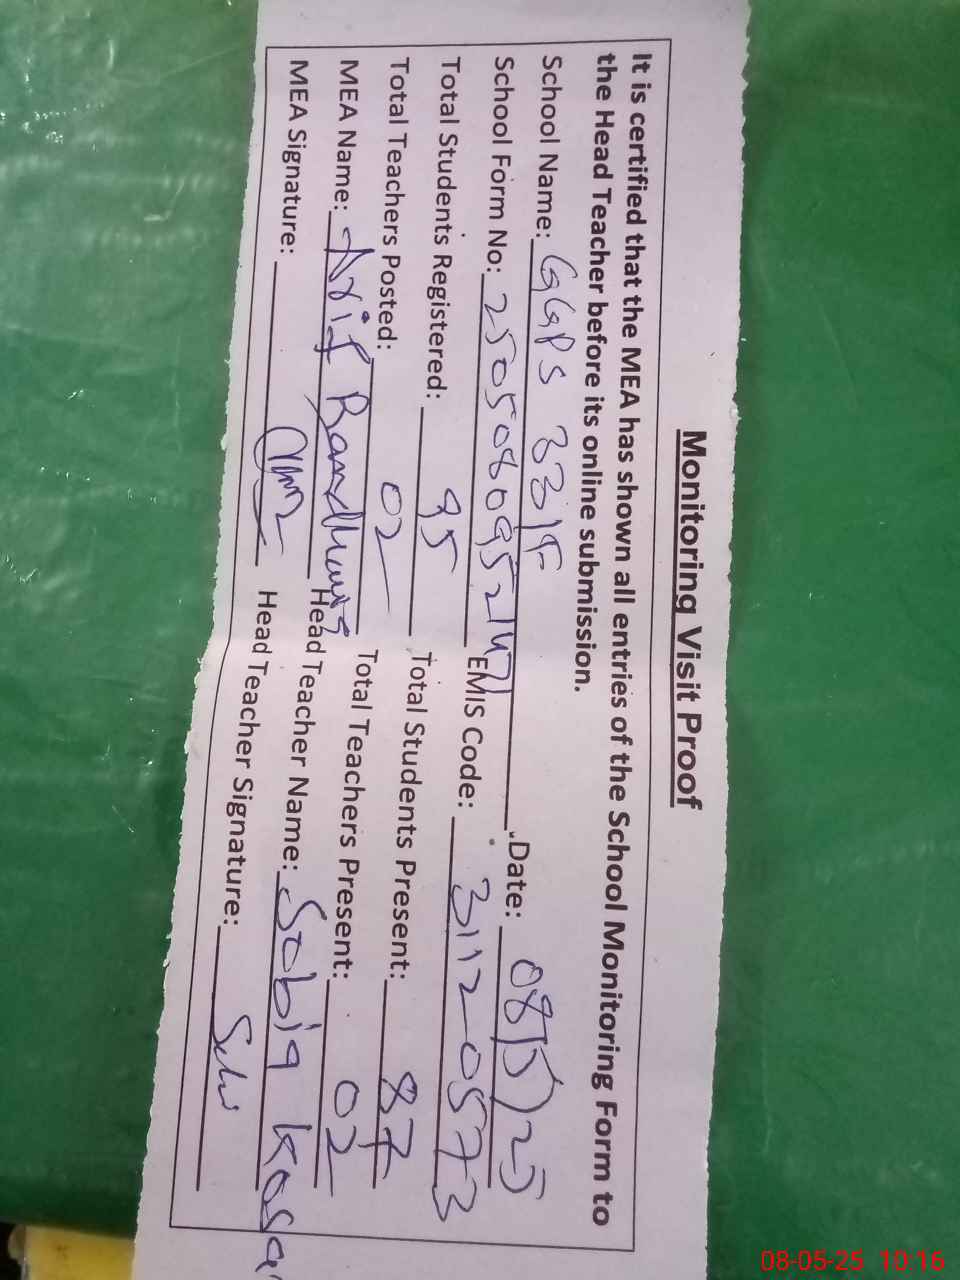 Monitoring Visit Proof
It is certified that the MEA has shown all entries of the School Monitoring Form to
the Head Teacher before its online submission.
School Name: GGPS 33/F Date: 08/5/25
School Form No: EMIS Code: 31120573
Total Students Registered: 95 Total Students Present: 87
Total Teachers Posted: 02 Total Teachers Present: 02
MEA Name: Arif Randhawa Head Teacher Name: Sobia
MEA Signature: Head Teacher Signature:
08-05-25 10:16